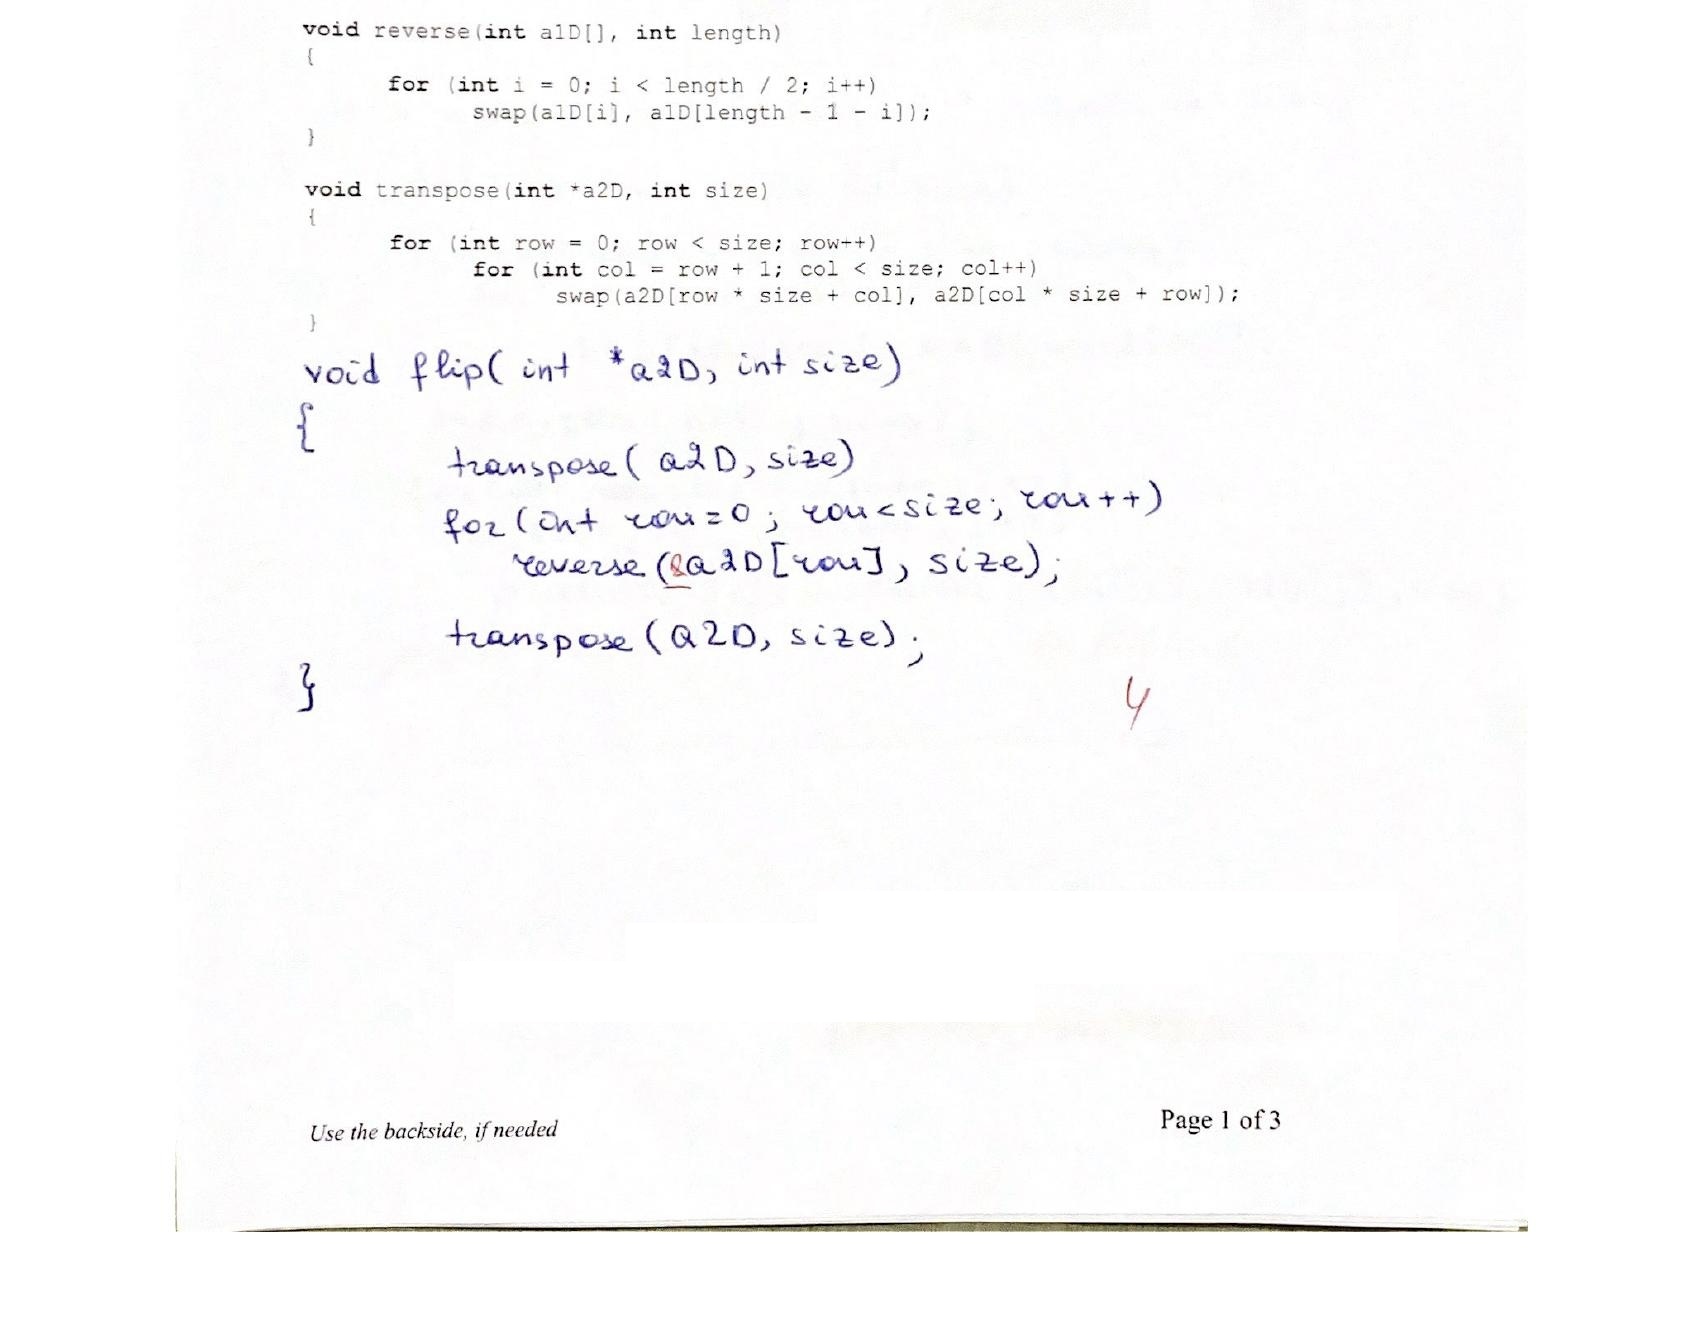 void reverse(int a1D[], int length)
{
for (int i = 0; i < length / 2; i++)
swap(a1D[i], a1D[length - 1 - i]);
}
void transpose(int *a2D, int size)
{
for (int row = 0; row < size; row++)
for (int col = row + 1; col < size; col++)
swap(a2D[row * size + col], a2D[col * size + row]);
}
void flip( int *a2D, int size)
{
transpose( a2D, size)
for (int row=0; row<size; row++)
reverse (&a2D[row], size);
transpose (a2D, size);
}
4
Use the backside, if needed
Page 1 of 3